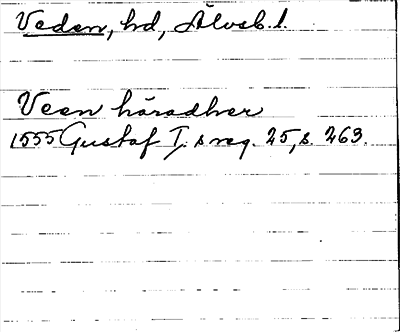 Veden, hd, Älvsb. l.
Veen häradher
1555 Gustaf I:s reg. 25, s. 263.